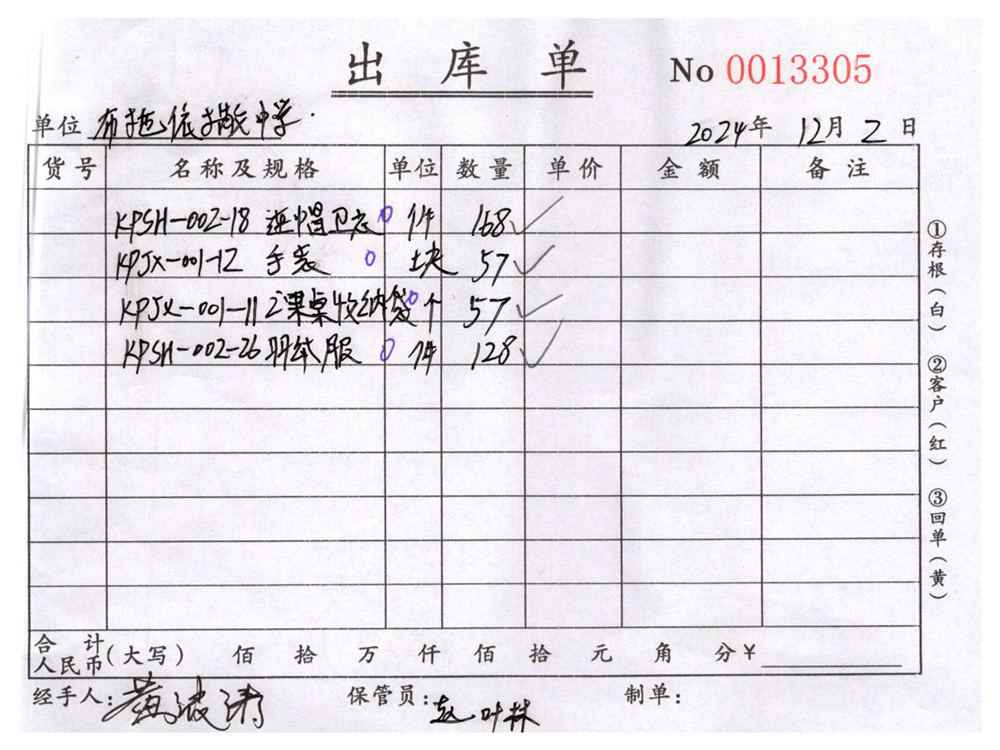 出库单 No 0013305
单位 布拉依撒中学
2024年 12月 2日
货号 名称及规格 单位 数量 单价 金额 备注
KPSH-002-18 连帽卫衣 件 168
KPJX-001-12 手表 块 57
KPJX-001-11 课桌收纳袋 个 57
KPSH-002-26 羽绒服 件 128
合计
人民币(大写) 佰 拾 万 仟 佰 拾 元 角 分 ¥
经手人: 保管员:赵叶林 制单:
①存根(白) ②客户(红) ③回单(黄)